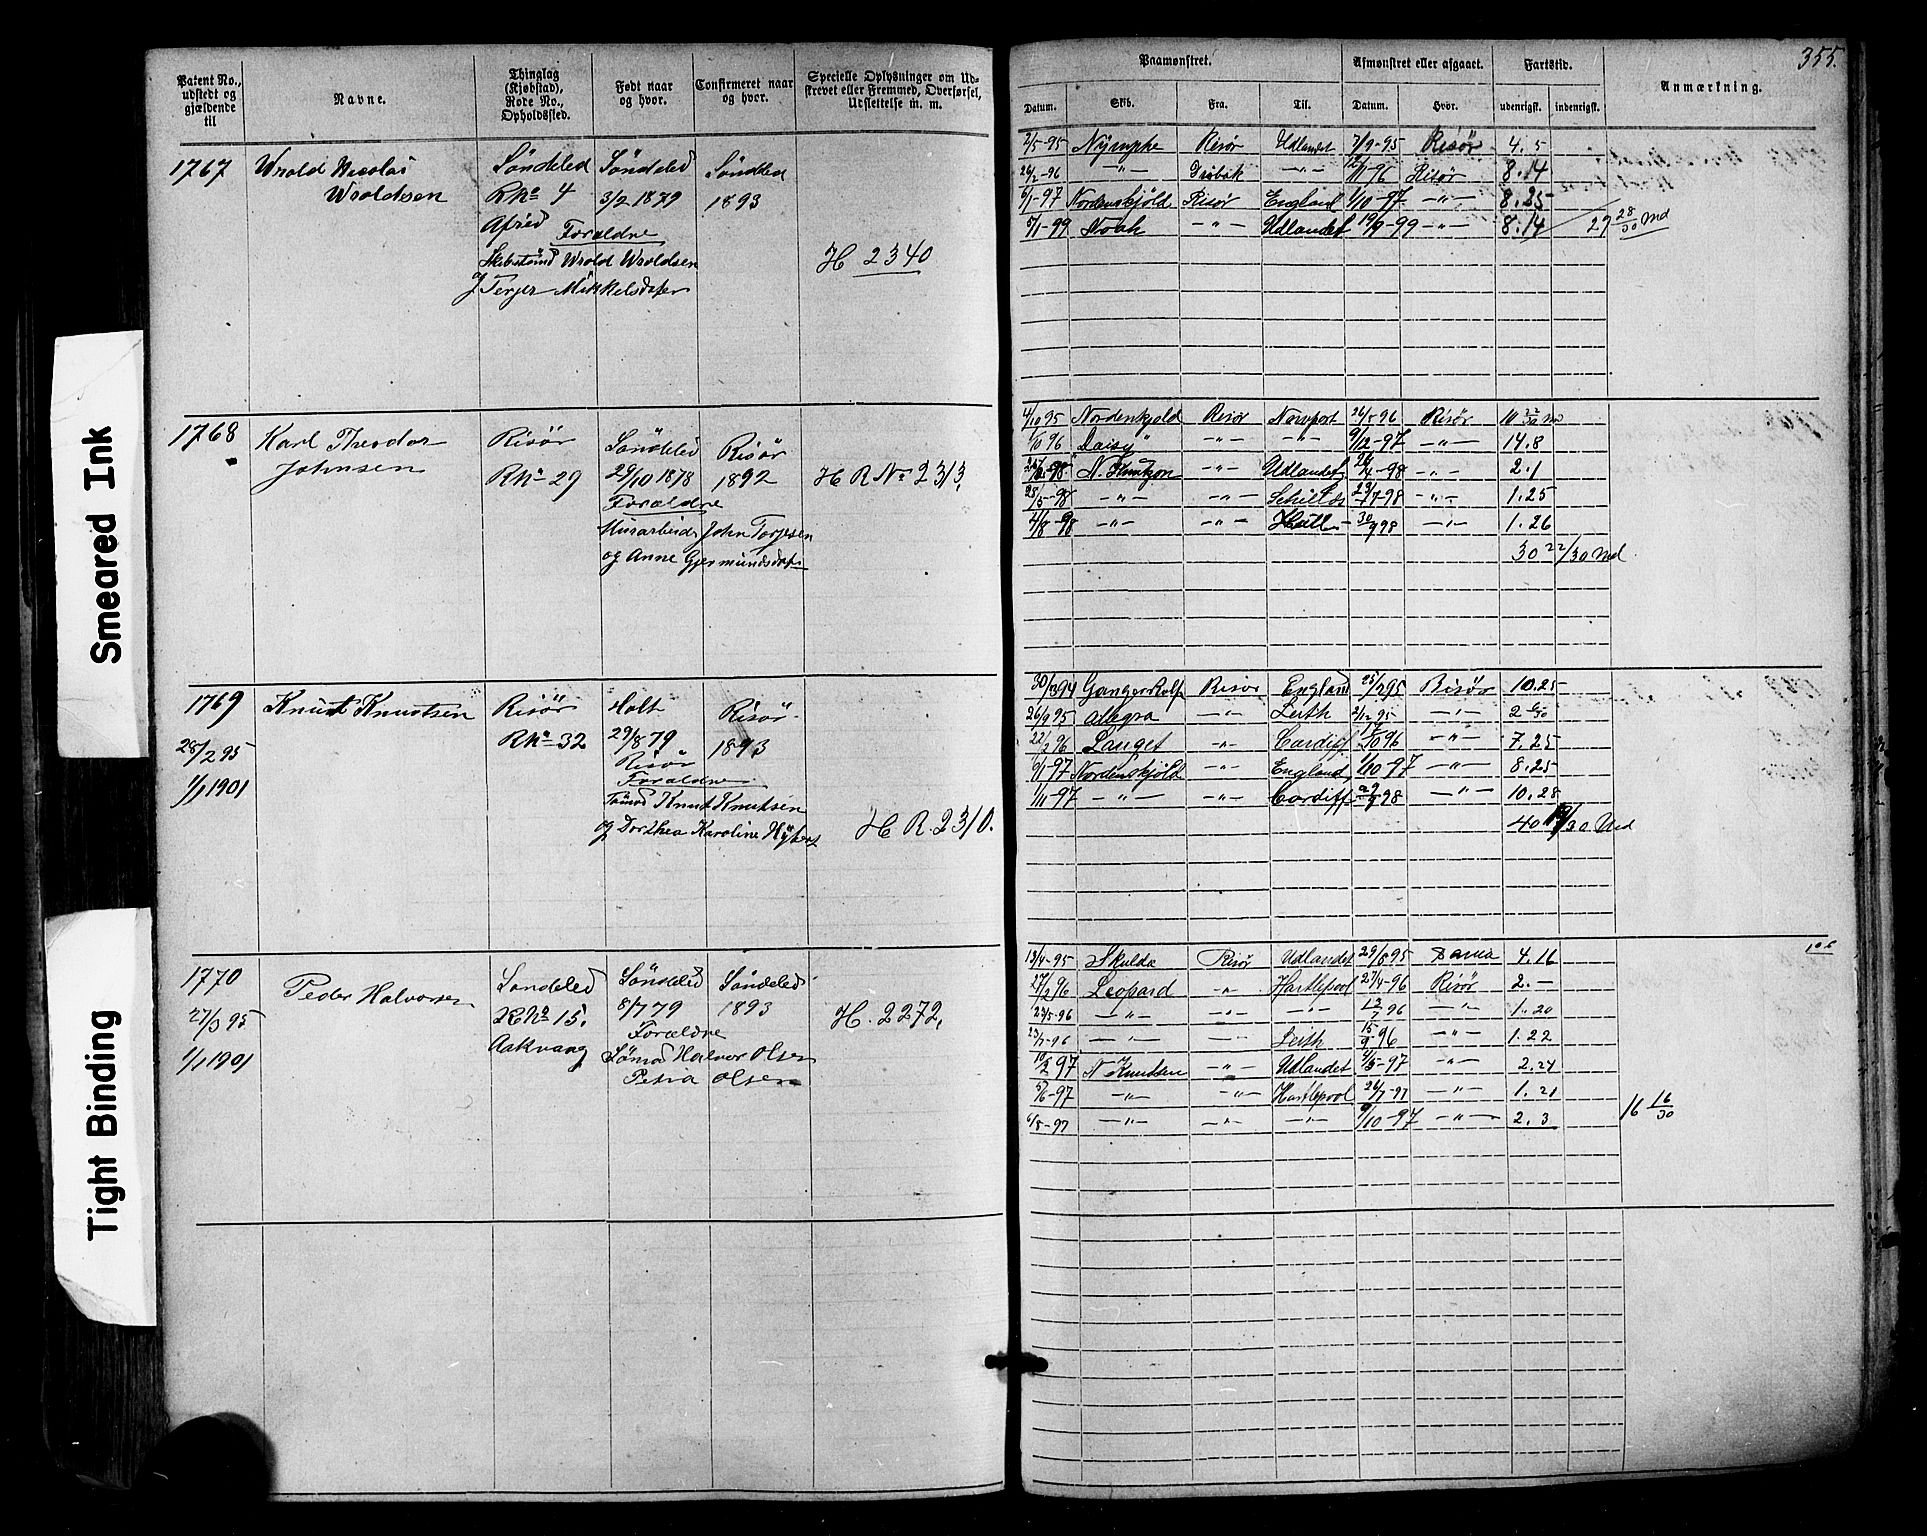 355.
Patent No., udstedt og gjældende til
Navne.
Thinglag (Kjøbstad), Rode No., Opholdssted.
Født naar og hvor.
Confirmeret naar og hvor.
Specielle Oplysninger om Udskrevet eller Fremmed, Overførsel, Udslettelse m. m.
Paamønstret.
Afmønstret eller afgaaet.
Fartstid.
Anmærkning.
Datum. Skib. Fra. Til. Datum. Hvor. udenrigsk. indenrigsk.
Smeared Ink
Tight Binding
1767 Wrold Nicolai Wroldsen
Søndeled RNo 4
Søndeled 3/2 1879
Søndeled 1893
Forældre
Wrold Wroldsen
og Terjer Mikkelsdater
H 2340
2/5-95 Nymphe Risør Udlandet 7/9-95 Risør 4.5
26/2-96 -"- Drøbak -"- Risør 8.14
6/1-97 Nordenskjöld Risør England 1/10-97 -"- 8.25
5/1-99 Noah -"- Udlandet 19/9-99 -"- 8.14 29 28/30 Md
1768 Karl Theodor Johnsen
Risør RNo 29
Søndeled 29/10 1878
Risør 1892
Forældre
John Torjesen
og Anne Gjermundsdater
H R No 2313.
4/10 95 Nordenkjold Risør Newport 26/5 96 Risør 10 22/30 Md
Daisy -"- -"- 9/12-97 -"- 14.8
-"- Udlandet -98 -"- 2.1
28/5-98 -"- -"- Schields -98 -"- 1.25
4/8-98 -"- -"- Hull 30/9 98 -"- 1.26
30 22/30 Md
1769 Knut Knutsen
28/2 95
1/1 1901
Risør RNo 32
Holt 29/8 79
Risør
Risør 1893
Forældre
Knut Knutsen
og Dorthea Karoline
H R. 2310.
30/3 94 Ganger Rolf Risør England 25/2 95 Risør 10.25
26/9 95 Allegra -"- Leith 2/12 95 -"- 2 6/30
22/2 96 Lauget -"- Cardiff 96 -"- 7.25
6/1-97 Nordenskjöld -"- England 1/10-97 -"- 8.25
1/11-97 -"- -"- Cardiff 29/9 98 -"- 10.28
40 /30 Md
1770 Peder Halvorsen
27/3 95
1/1 1901
Søndeled RNo 15.
Aakvaag
Søndeled 8/7 79
Søndeled 1893
Forældre
Halvor Olsen
Petra Olsen
H. 2272.
13/4-95 Skulda Risør Udlandet 29/8 95 4.16
27/2 96 Leopard -"- Hartlepool 27/4-96 Risør 2.-
23/5-96 -"- -"- -"- 12/7 96 -"- 1.20
23/7-96 -"- -"- Leith 15/9 96 -"- 1.22
10/2 97 N Knudsen -"- Udlandet 4/5-97 -"- 2.24
5/6-97 -"- -"- Hartlepool 26/7-97 -"- 1.21
6/8-97 -"- -"- -"- 9/10-97 -"- 2.3 16 16/30